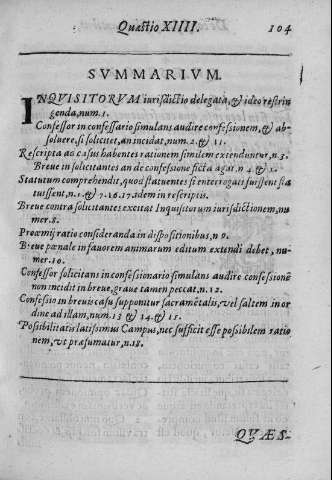 Quæstio XIIII.
104
SVMMARIVM.
INQVISITORVM iurisdictio delegata, & ideo restrin
genda, num. 1.
Confessor in confessario simulans audire confessionem, & ab-
soluere, si solicitet, an incidat, num. 2. & 11.
Rescripta ad casus habentes rationem similem extenduntur, n. 3.
Breue in solicitantes an de confessione ficta agat. n 4 &
Statutum comprehendit, quod statuentes si interrogati fuissent sta
tuissent, n. 1. & 7. 16. 17. idem in rescriptis.
Breue contra solicitantes excitat Inquisitorum iurisdictionem, nu
mer. 8.
Proœmij ratio consideranda in dispositionibus, n 9.
Breue pœnale in fauorem animarum editum extendi debet, nu-
mer. 10.
Confessor solicitans in confessionario simulans audire confessionē
non incidit in breue, graue tamen peccat, n. 12.
Confessio in breuis casu supponitur sacramētalis, vel saltem in or
dine ad illam, num. 13 & 14. & 15.
Possibilitatis latissimus Campus, nec sufficit esse possibilem ratio
nem, vt præsumatur, n. 18.
QVÆS-